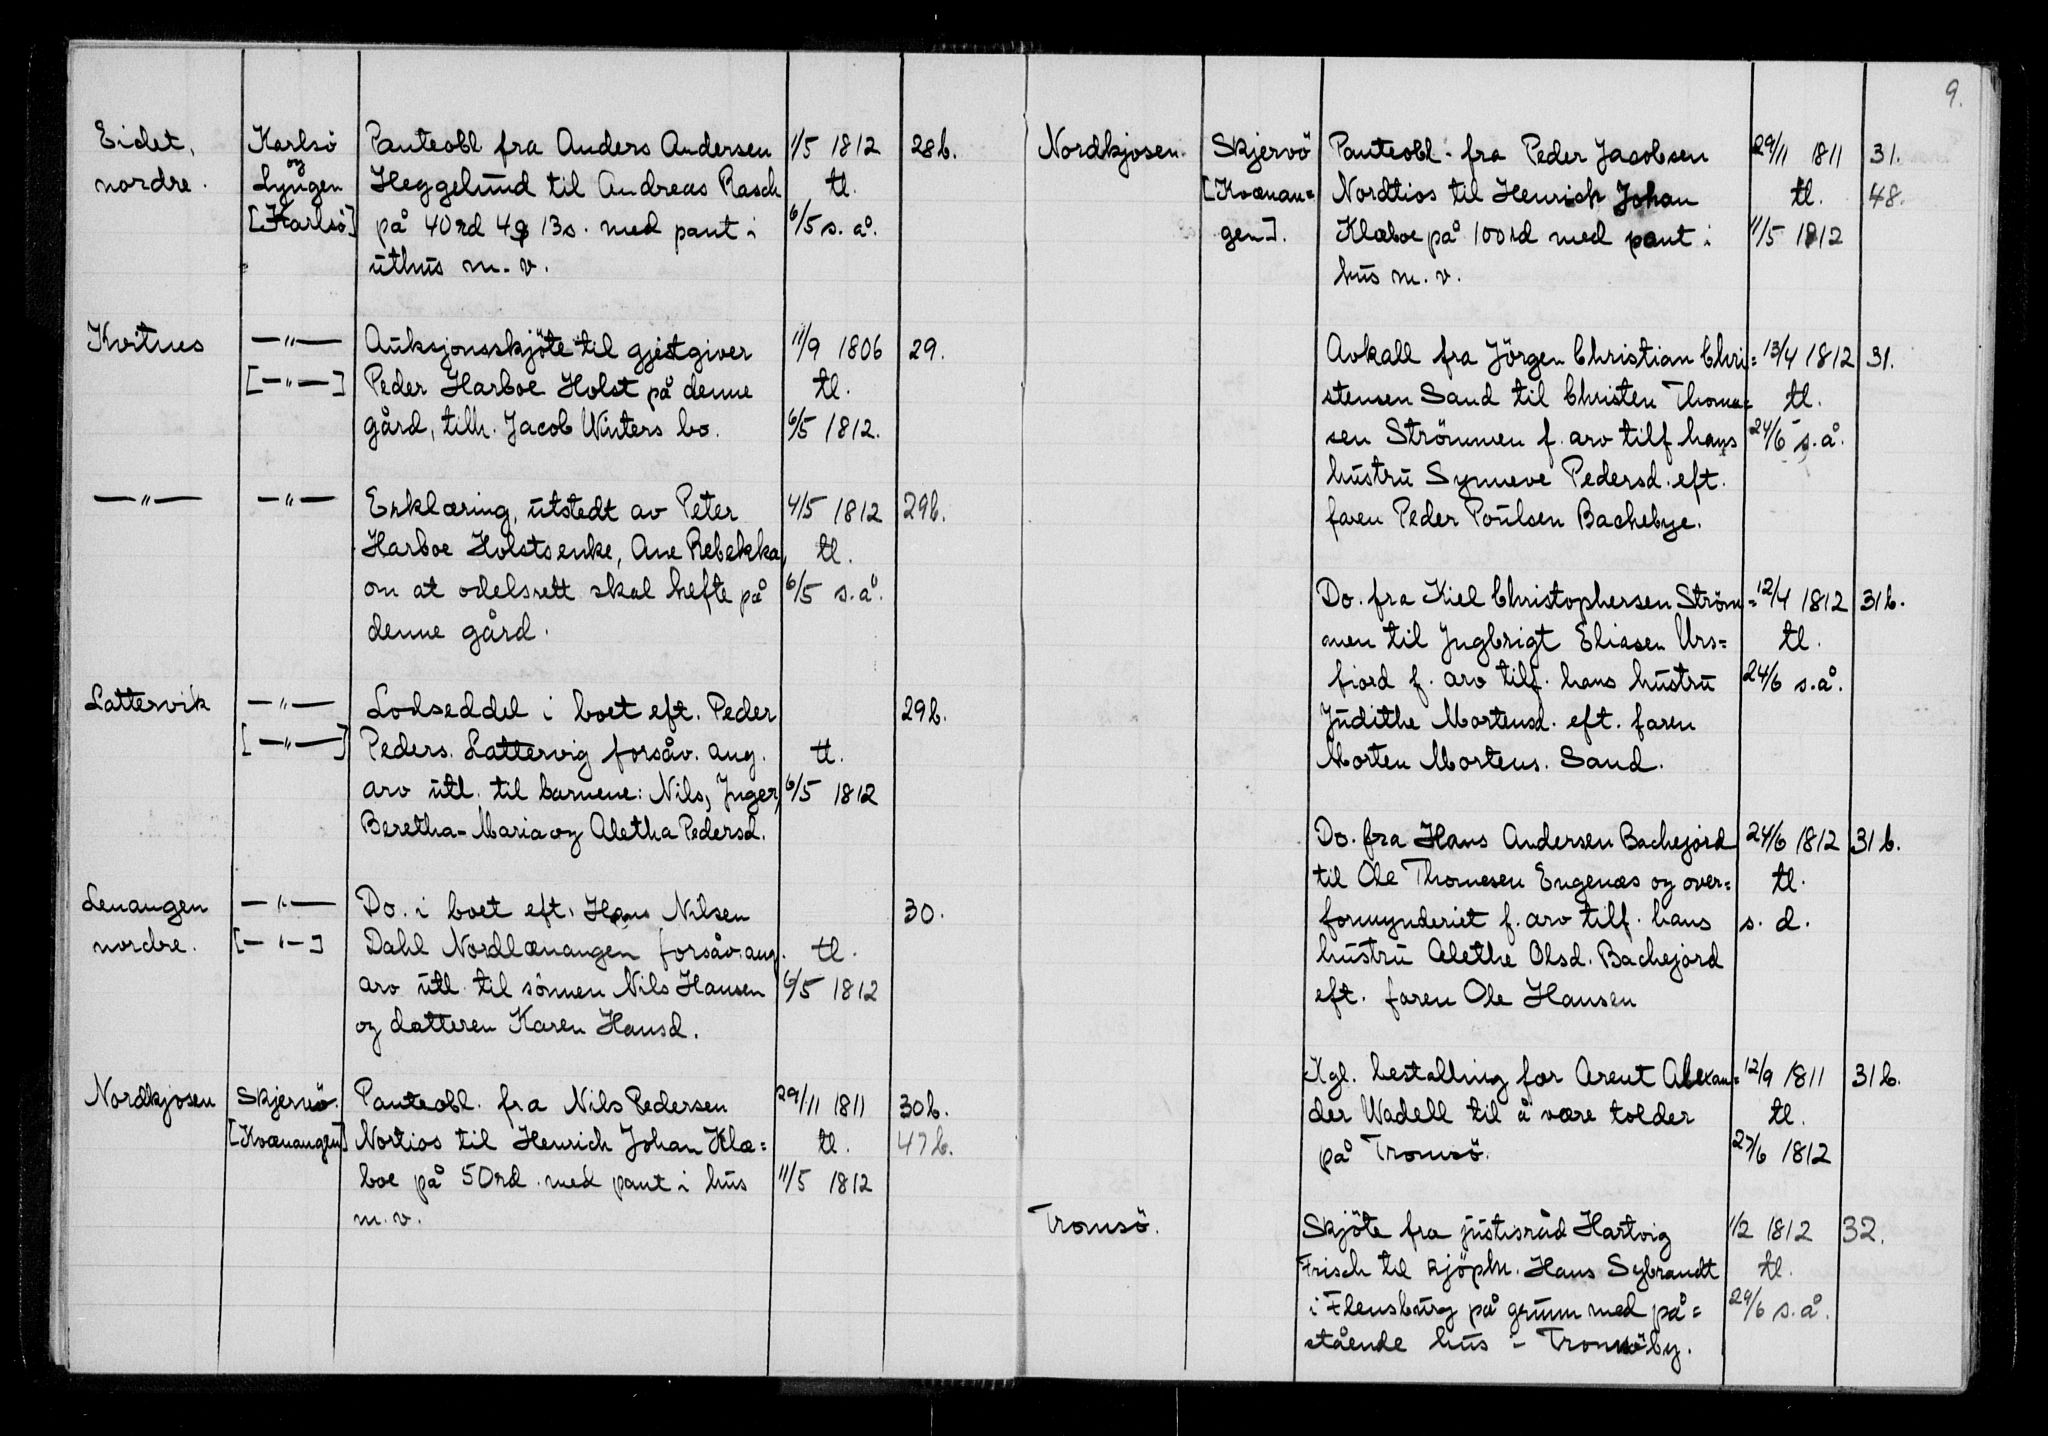 9.
Eidet, Karlsö Panteobl fra Anders Andersen 1/5 1812 28b.
og
nordre. Lyngen Heggelund til Andreas Rasch tl.
[Karlsö] på 40rd 4 13s. med pant i 6/5 s.å.
uthus m.v.
Kvitnes —"— Auksjonsskjöte til gjestgiver 11/9 1806 29.
[—"—] Peder Harboe Holst på denne tl.
gård, tilh. Jacob Winters bo. 6/5 1812.
—"— —"— Erklæring, utstedt av Peter 4/5 1812 29b.
Harboe Holsts enke, Ane Rebekka, tl.
om at odelsrett skal hefte på 6/5 s.å.
denne gård.
Lattervik —"— Lodseddel i boet eft. Peder 29b.
[—"—] Peders. Lattervig forsåv. ang. tl.
arv utl. til barnene: Nils, Inger, 6/5 1812
Beretha-Maria og Aletha Pedersd.
Lenangen —"— Do. i boet eft. Hans Nilsen 30.
nordre. [—"—] Dahl Nordlænangen forsåv. ang. tl.
arv utl. til sönnen Nils Hansen 6/5 1812
og datteren Karen Hansd.
Nordkjosen Skjervö. Panteobl. fra Nils Pedersen 29/11 1811 30b.
[Kvænangen] Nortios til Henrich Johan Klæ= tl. 47b.
boe på 50rd. med pant i hus 11/5 1812
m.v.
Nordkjosen. Skjervö Panteobl. fra Peder Jacobsen 29/11 1811 31.
[Kvænan= Nordtios til Henrich Johan tl. 48.
gen]. Klæboe på 100rd med pant i 11/5 1812
hus m.v.
Avkall fra Jörgen Christian Chri= 13/4 1812 31.
stensen Sand til Christen Thoma= tl.
sen Strömmen f. arv tilf. hans 24/6 s.å.
hustru Synneve Pedersd. eft.
faren Peder Poulsen Bachebye.
Do. fra Kiel Christophersen Ström= 12/4 1812 31b.
men til Ingbrigt Eliasen Urs= tl.
fiord f. arv tilf. hans hustru 24/6 s.å.
Judithe Mortensd. eft. faren
Morten Mortens. Sand.
Do. fra Hans Andersen Bachejord 24/6 1812 31b.
til Ole Thomesen Engenæs og over= tl.
formynderiet f. arv tilf. hans s.d.
hustru Alethe Olsd. Bachejord
eft. faren Ole Hansen
Kgl. bestalling for Arent Alexan= 12/9 1811 31b.
der Wadell til å være tolder tl.
på Tromsö. 27/6 1812
Tromsö. Skjöte fra justisråd Hartvig 1/2 1812 32.
Frisch til kjöpm. Hans Sybrandt tl.
i Flensburg på grunn med på= 29/6 s.å.
stående hus i Tromsöby.